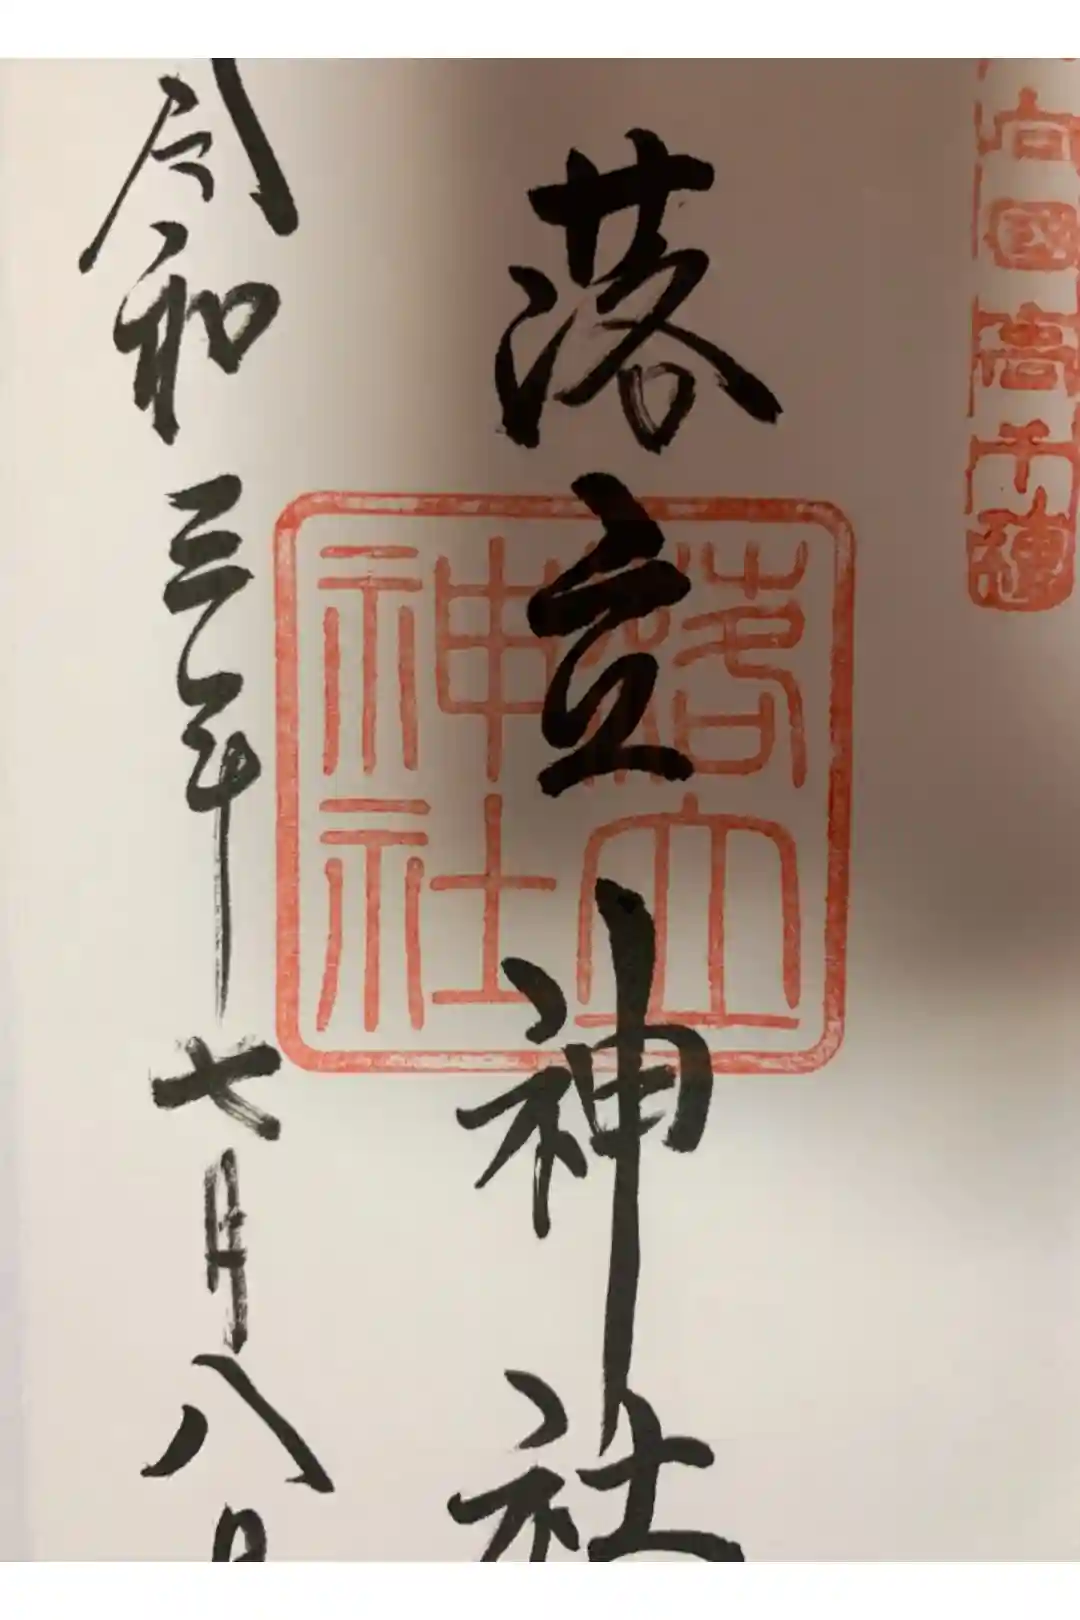 向國高千穂
落立神社
落立神社
令和三年七月八日